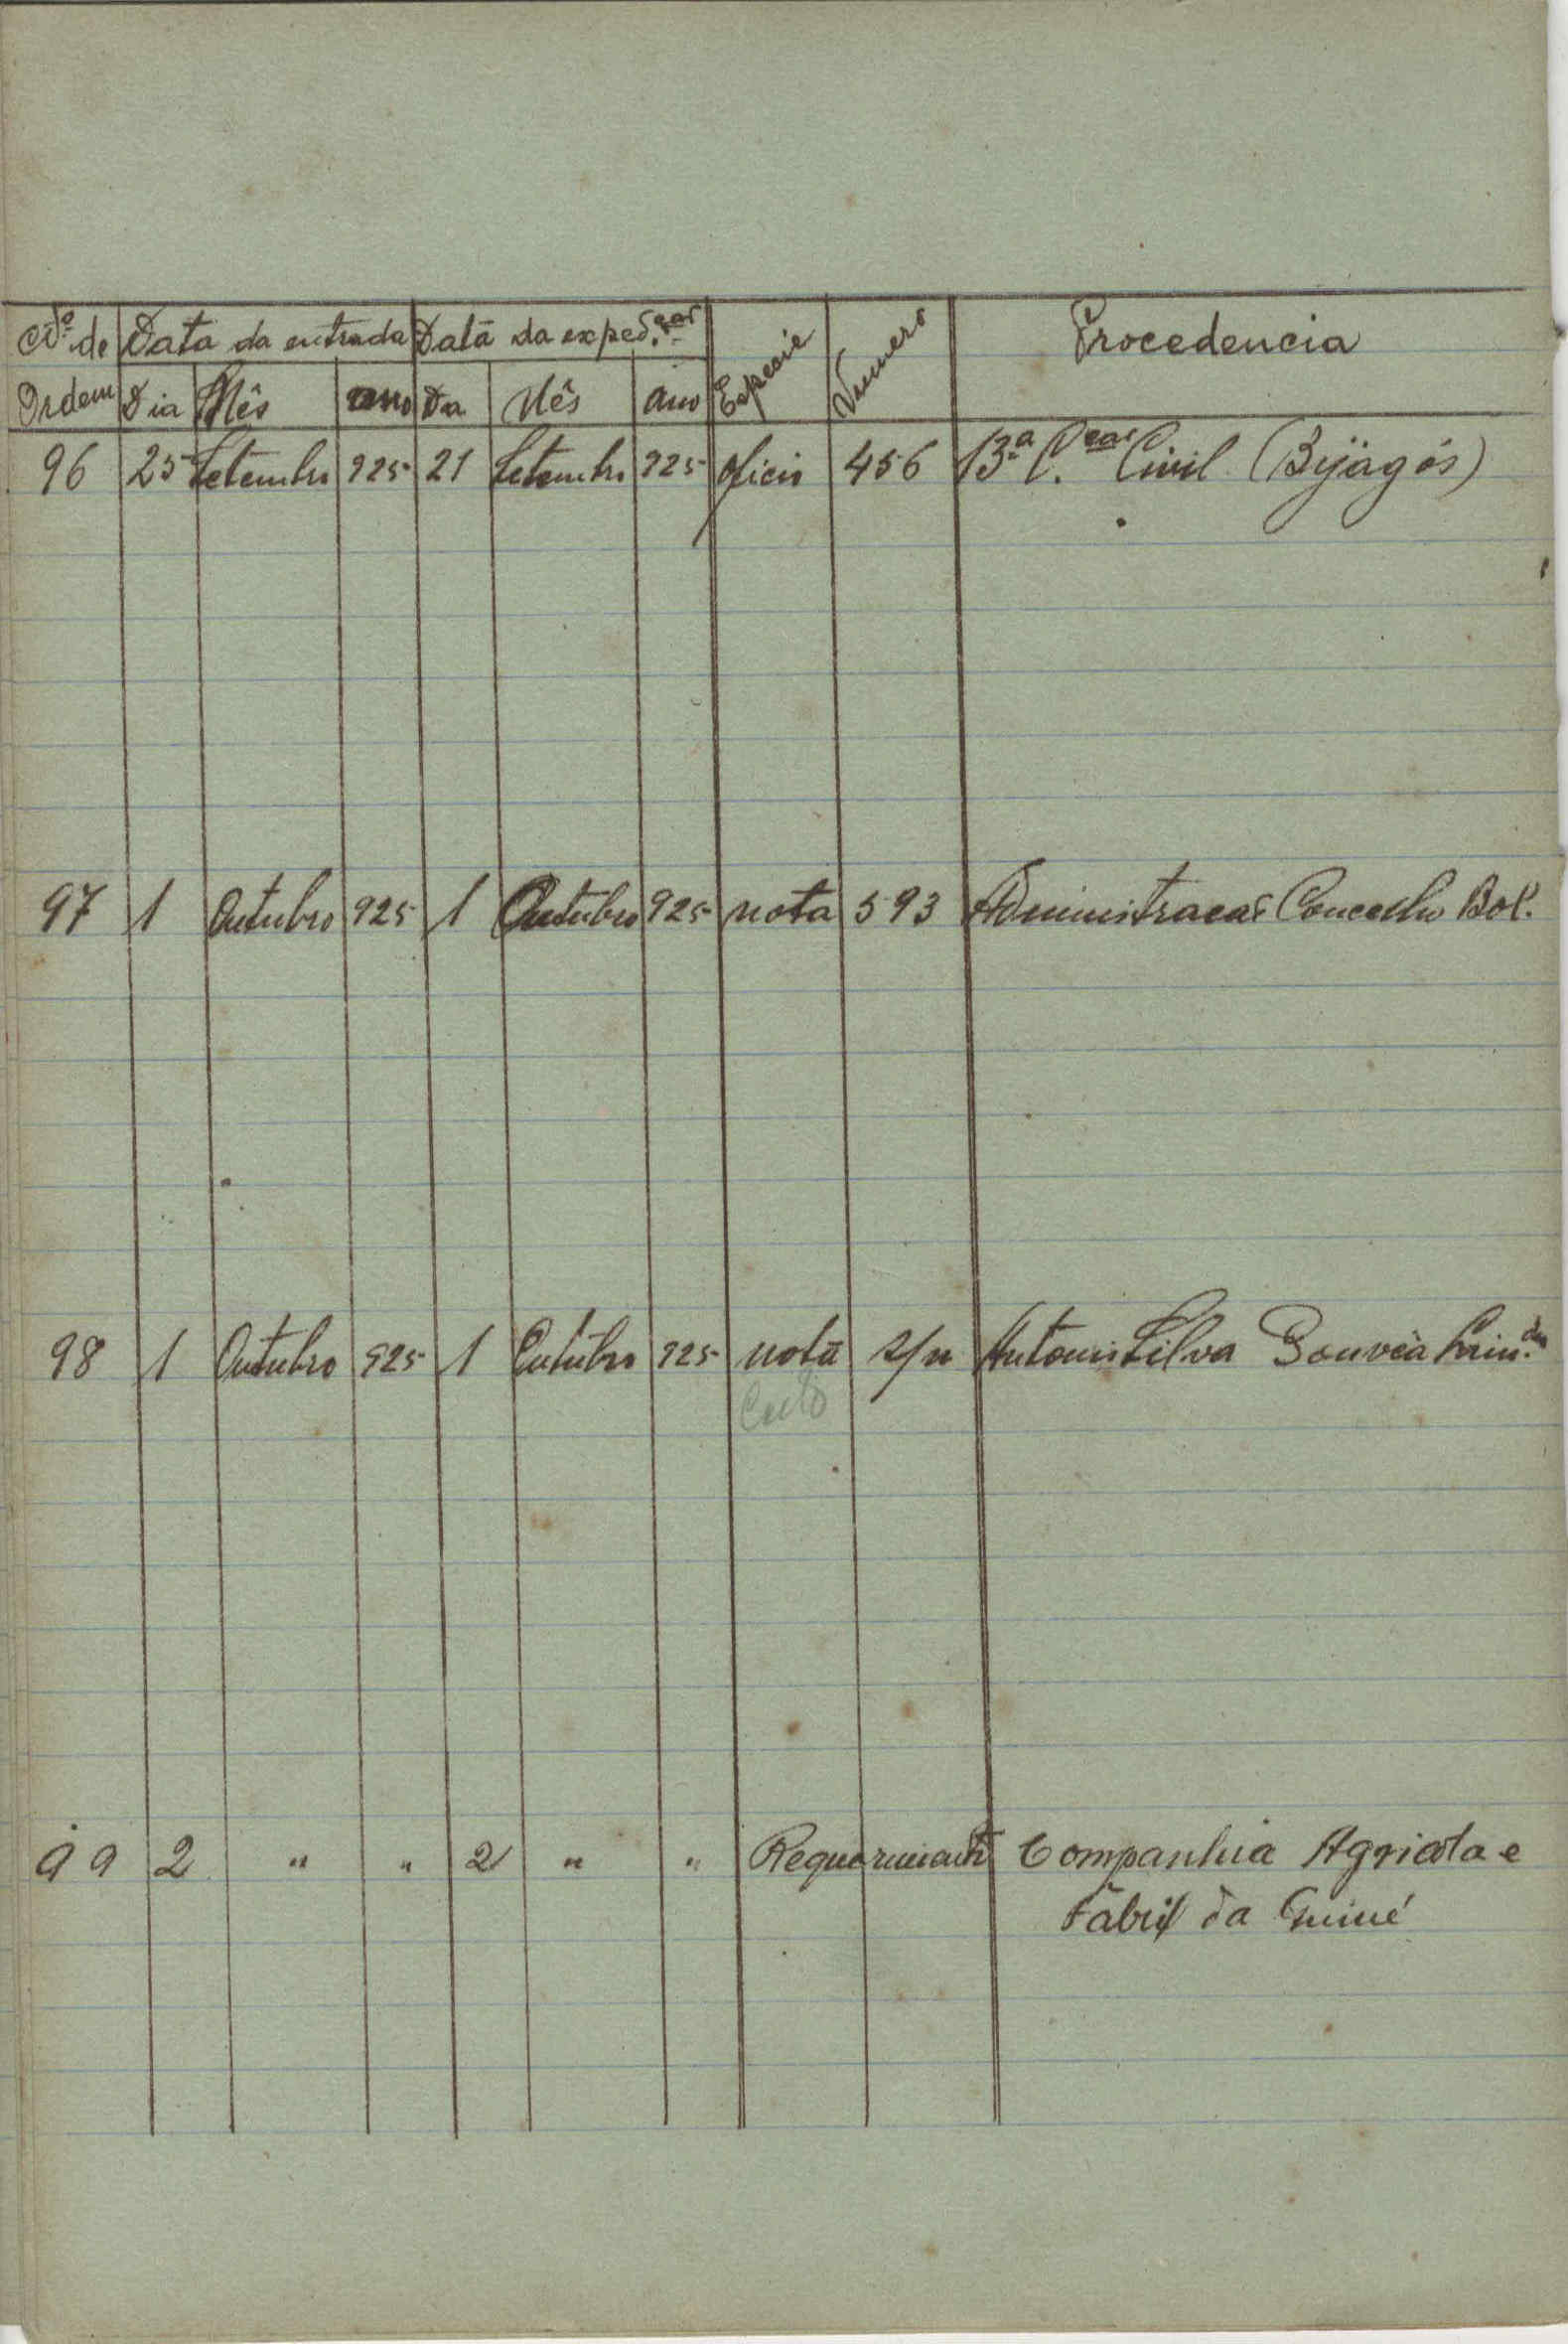 Nº de Data da entrada Data da exped.ção Especie Numero Procedencia
Ordem Dia Mês ano Da Mês ano
96 25 Setembro 925 21 Setembro 925 oficio 456 13ª C.ção Civil (Bijagós)
97 1 Outubro 925 1 Outubro 925 nota 593 Administração Concelho Bol.
98 1 Outubro 925 1 Outubro 925 nota s/n Antonio Silva Gouvêa
99 2 " " 2 " " Requerimento Companhia Agricola e
Fabril da Guiné